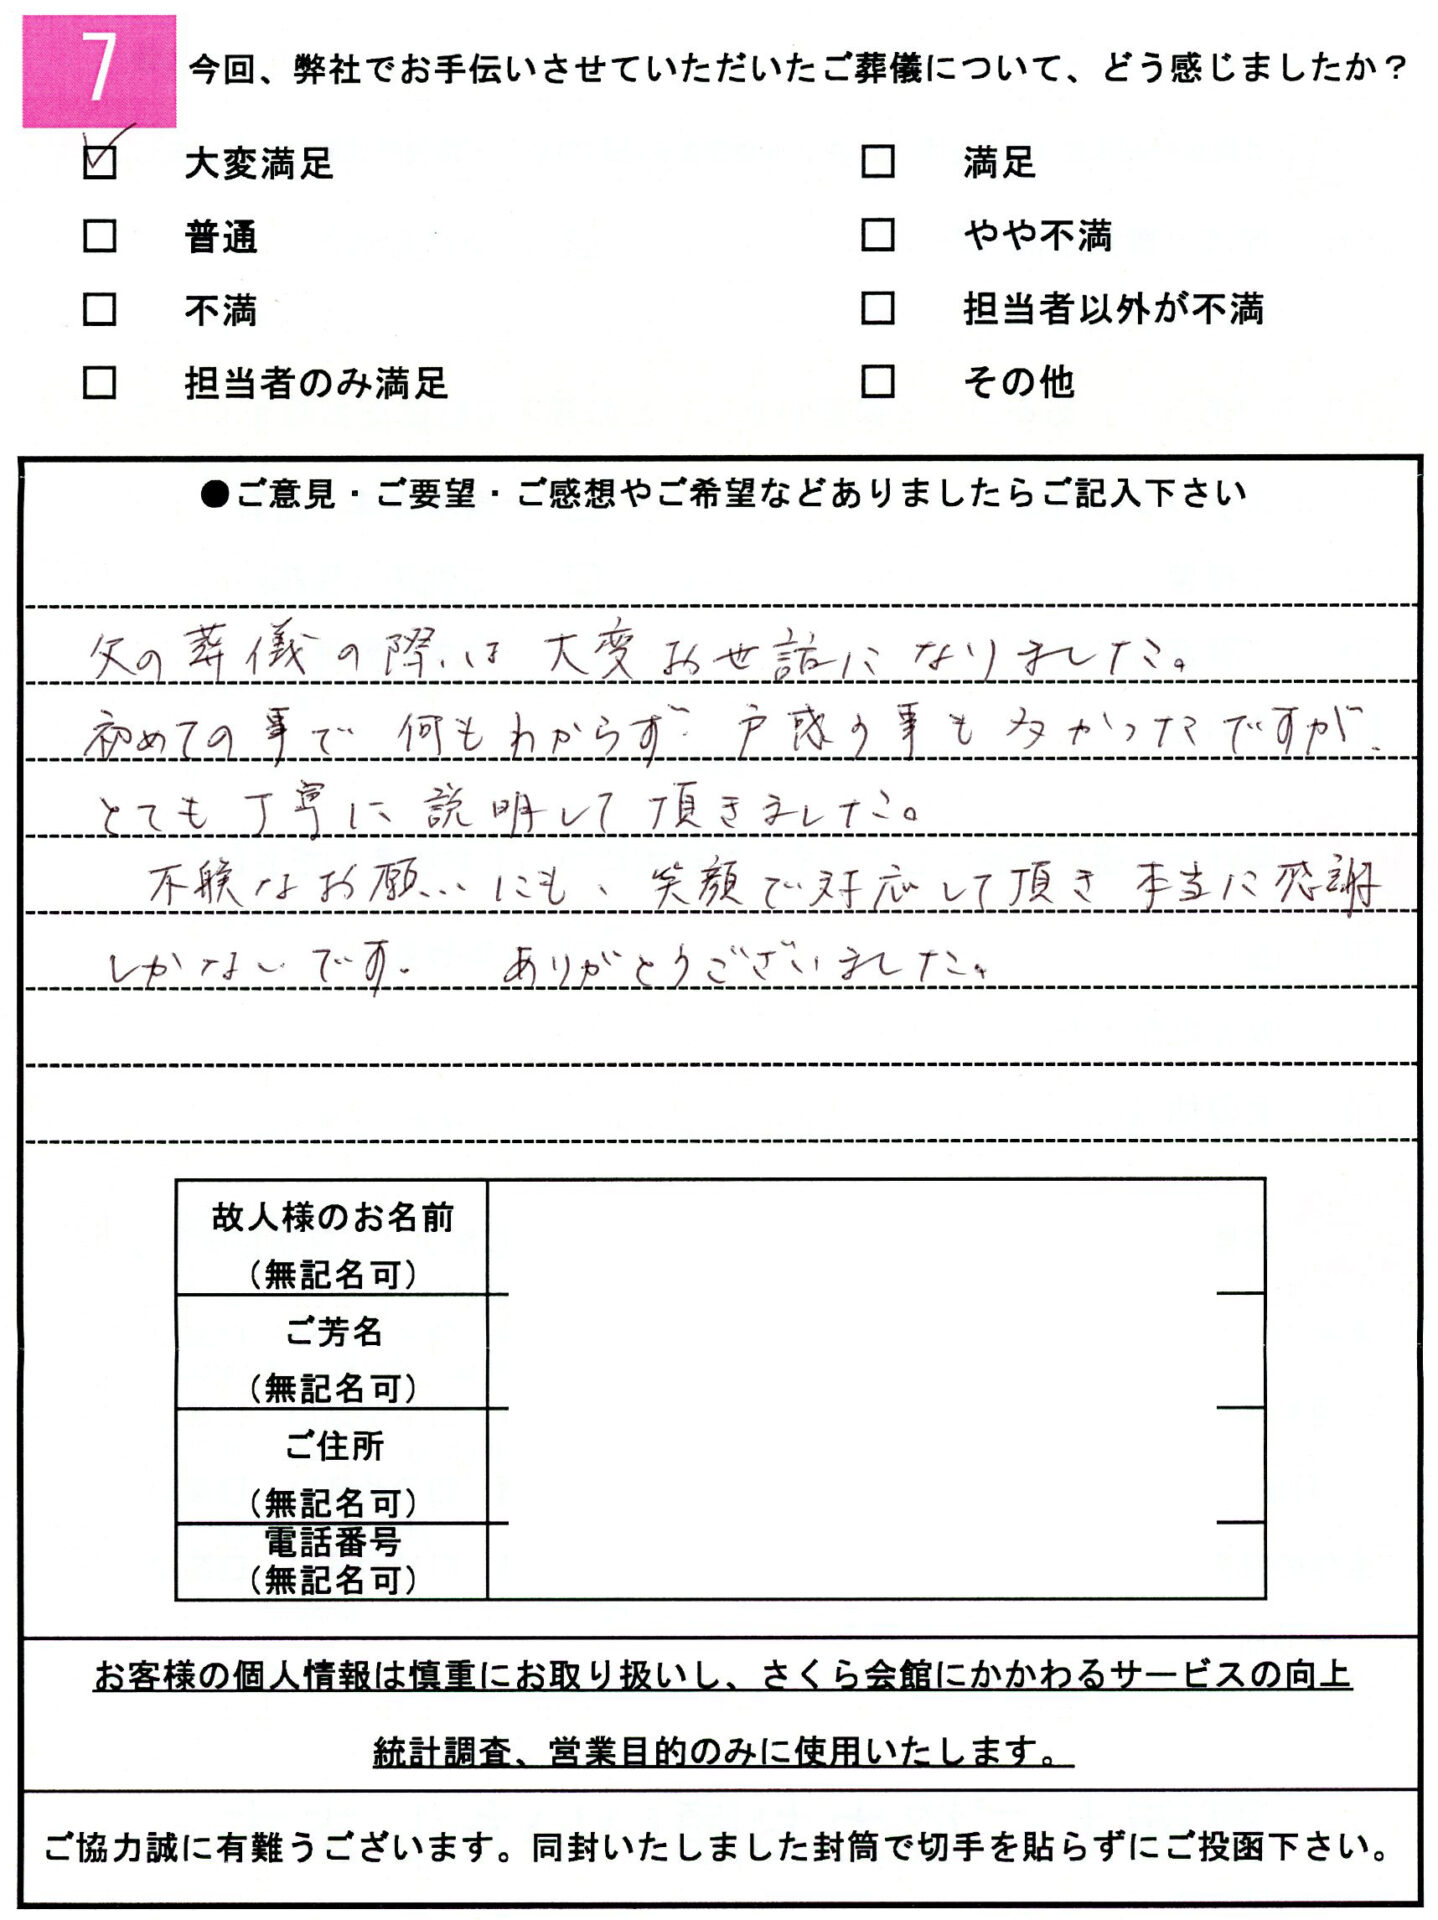 7
今回、弊社でお手伝いさせていただいたご葬儀について、どう感じましたか？
大変満足
満足
普通
やや不満
不満
担当者以外が不満
担当者のみ満足
その他
●ご意見・ご要望・ご感想やご希望などありましたらご記入下さい
父の葬儀の際は大変お世話になりました。
初めての事で何もわからず戸惑う事も多かったですが、
とても丁寧に説明して頂きました。
なお願いにも、笑顔で対応して頂き本当に感謝
しかないです。ありがとうございました。
故人様のお名前
（無記名可）
ご芳名
（無記名可）
ご住所
（無記名可）
電話番号
（無記名可）
お客様の個人情報は慎重にお取り扱いし、さくら会館にかかわるサービスの向上
統計調査、営業目的のみに使用いたします。
ご協力誠に有難うございます。同封いたしました封筒で切手を貼らずにご投函下さい。